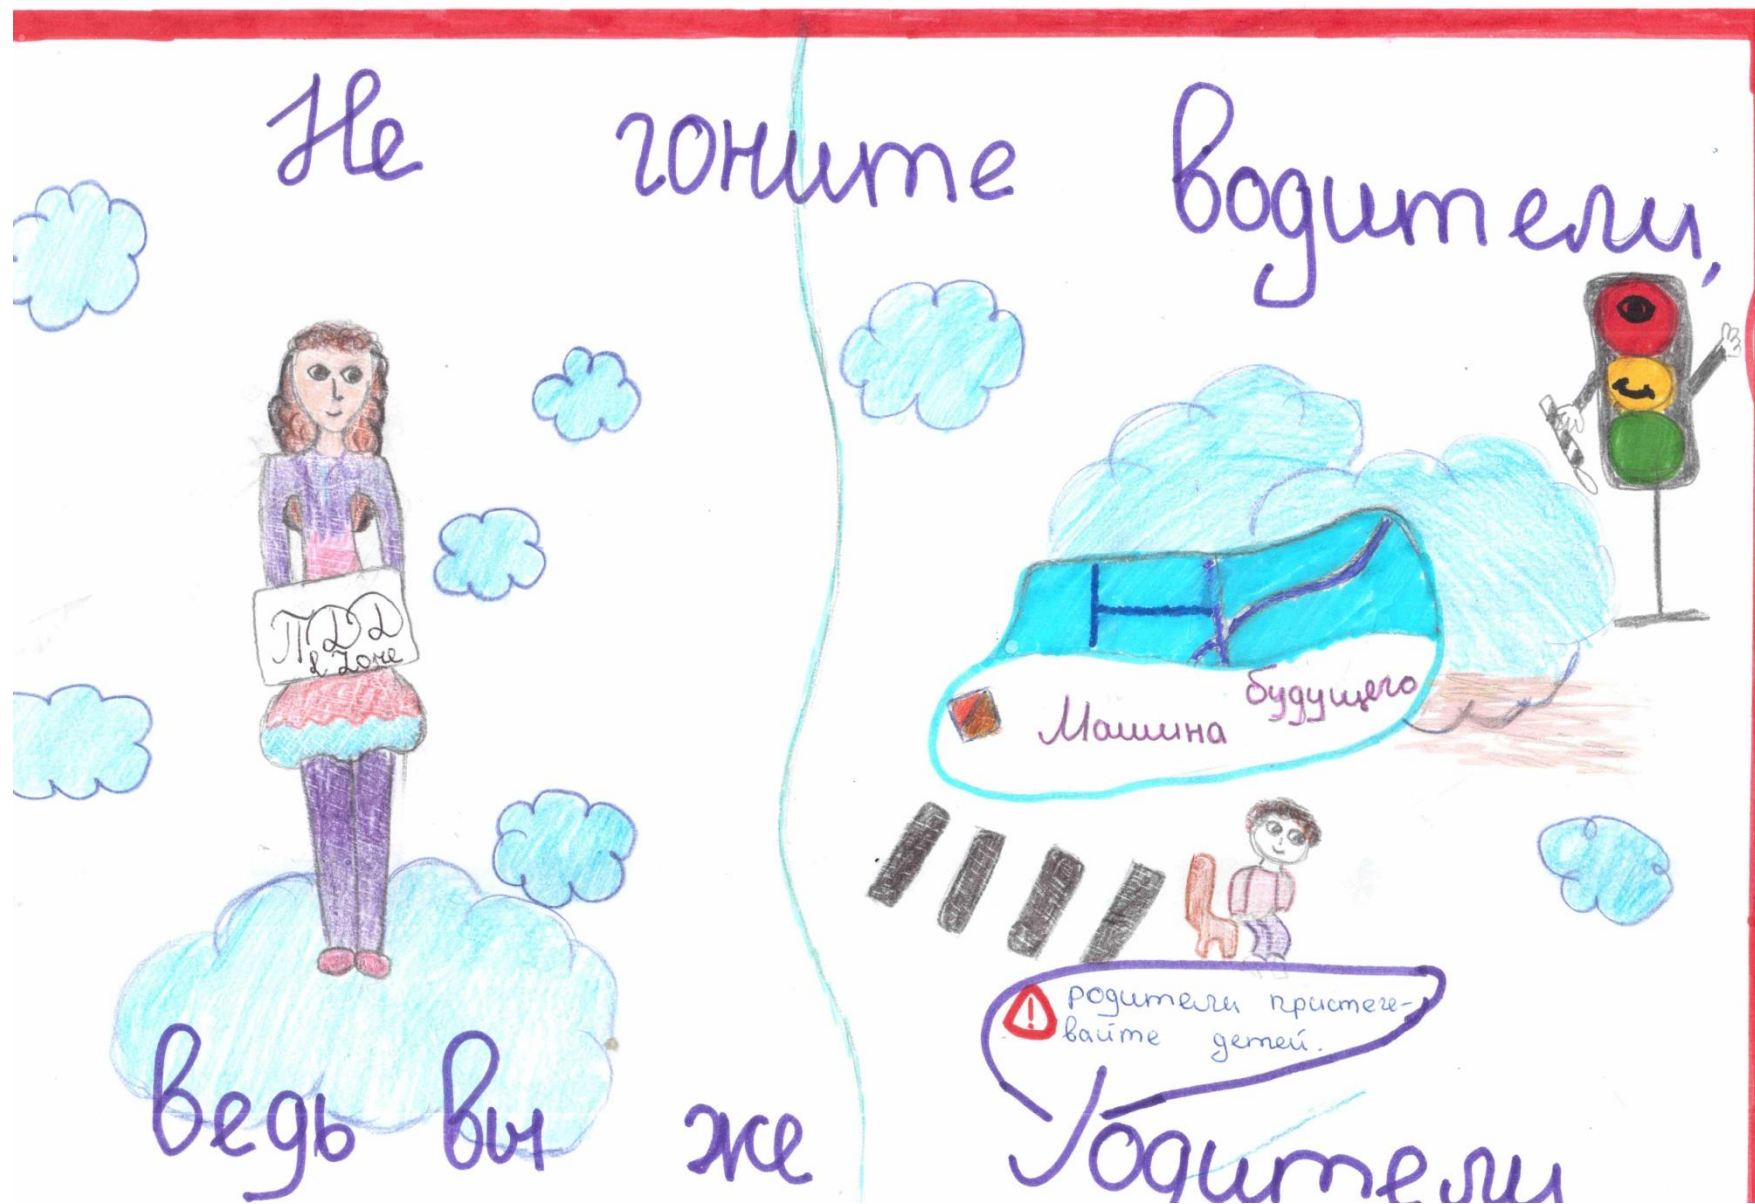 Не гоните водители,
ПДД
в Zоне
Машина будущего
родители пристеге-
вайте детей.
ведь вы же родители